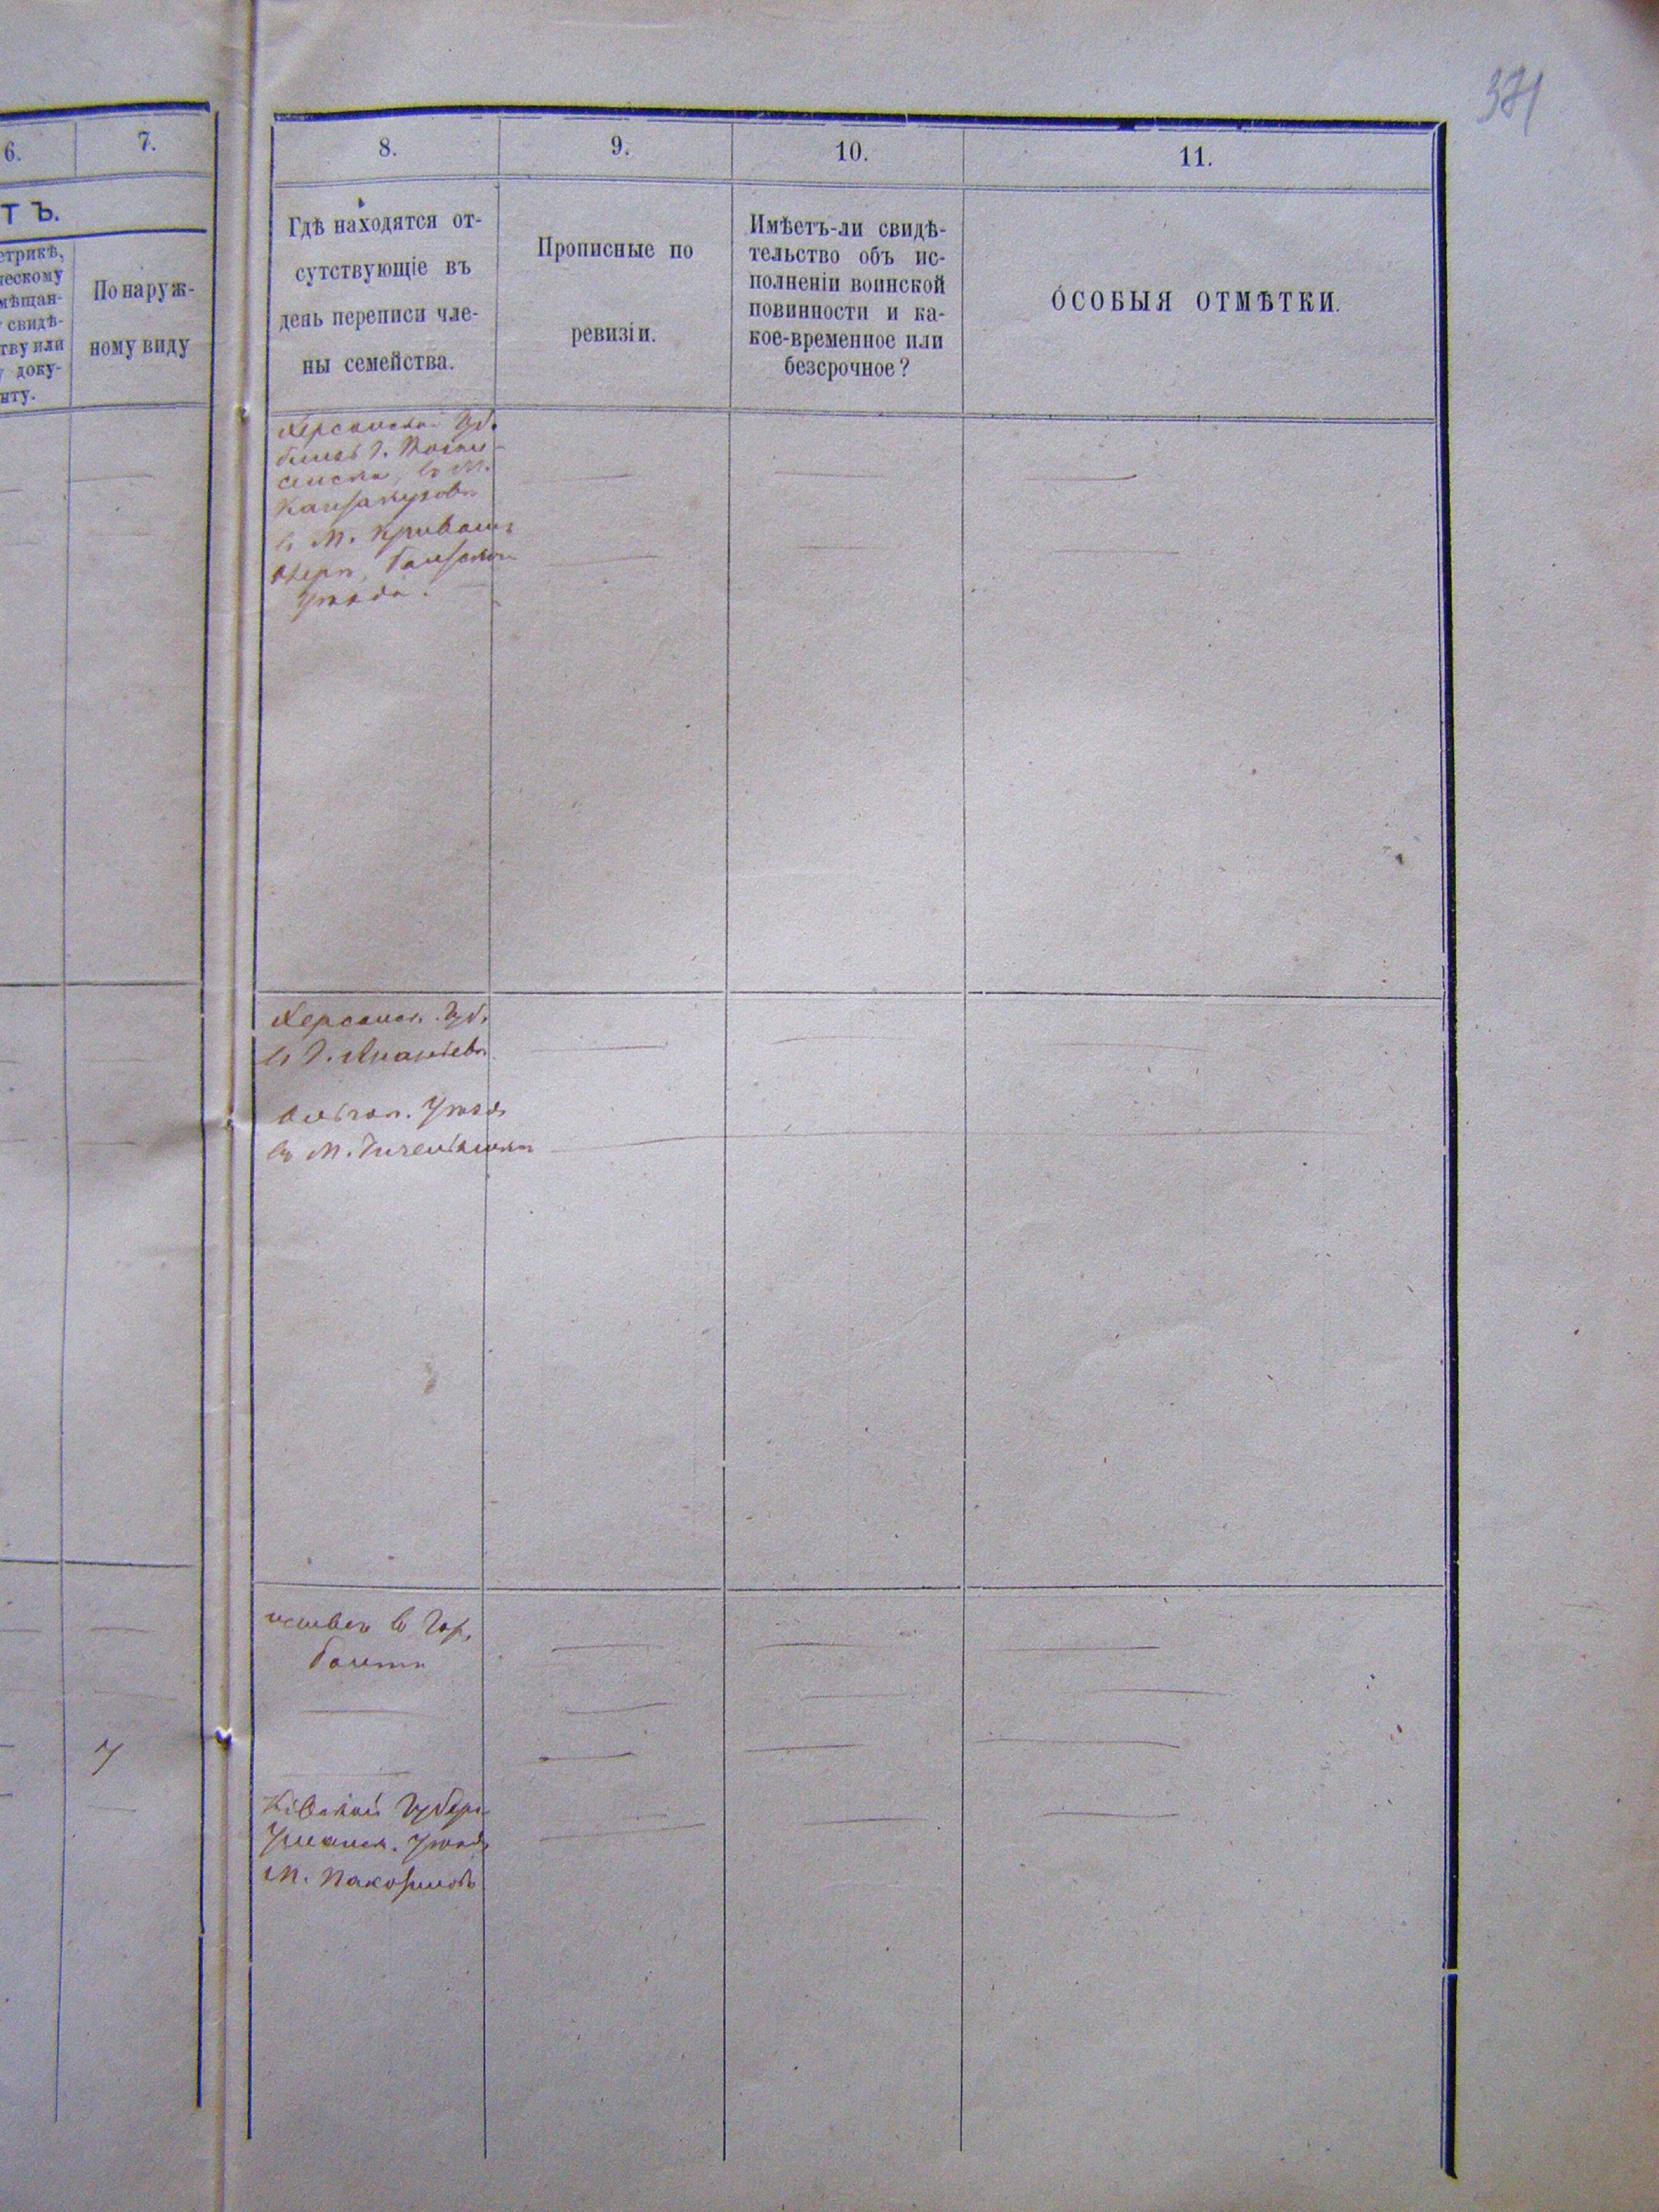 371
6.
7.
8.
9.
10.
11.
ТЪ.
етрикѣ,
ческому
мѣщан-
свидѣ-
тву или
доку-
нту.
По наруж-
ному виду
Гдѣ находятся от-
сутствующіе въ
день переписи чле-
ны семейства.
Прописные по
ревизіи.
Имѣетъ-ли свидѣ-
тельство объ ис-
полненіи воинской
повинности и ка-
кое-временное или
безсрочное?
ОСОБЫЯ ОТМѢТКИ.
Херсонской Губ.
близь г.
въ М.
въ М. Кривомъ
Озерѣ, Балтскаго
Уѣзда.
Херсонск. Губ.
въ г. Ананьевѣ
Уѣзда
въ М.
живетъ въ Гор.
Балтѣ
7
Кіевской Губерн.
Уманск. Уѣзда
М.